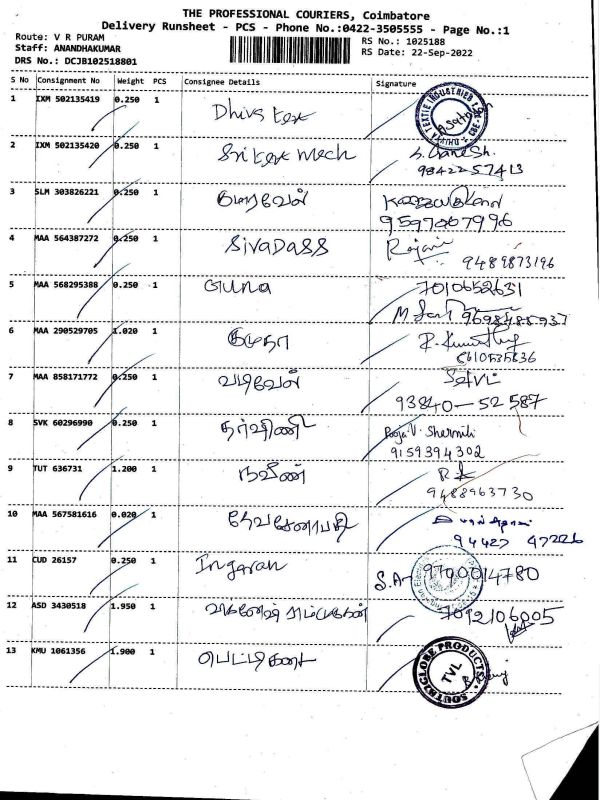 THE PROFESSIONAL COURIERS, Coimbatore
Delivery Runsheet - PCS - Phone No.:0422-3505555 - Page No.:1
Route: V R PURAM
RS No.: 1025188
Staff: ANANDHAKUMAR
RS Date: 22-Sep-2022
DRS No.: DCJB102518801
S No Consignment No Weight PCS Consignee Details Signature
1 IXM 502135419 0.250 1 Dhiva tex
2 IXM 502135420 0.250 1 Sri tex mech S. Ganesh.
9842257413
3 SLM 303826221 0.250 1 குமரவேல்
9597007996
4 MAA 564387272 0.250 1 SIVADASS Rajani
9489873196
5 MAA 568295388 0.250 1 Guna 7010652631
9698488937
6 MAA 290529705 1.020 1 குமுதா
8610535836
7 MAA 858171772 0.250 1 வடிவேல் Selvi
93840-52587
8 SVK 60296990 0.250 1 தர்ஷினி Pooja V. Shernili
9159394302
9 TUT 636731 1.200 1 நவீன் R.K
9488963730
10 MAA 567581616 0.020 1 தேவசேனாபதி
94427 47226
11 CUD 26157 0.250 1 Ingaran S.A 9700014780
12 ASD 3430518 1.950 1 7092106005
13 KMU 1061356 1.900 1
SOUTH GLOBE PRODUCTS
TVL